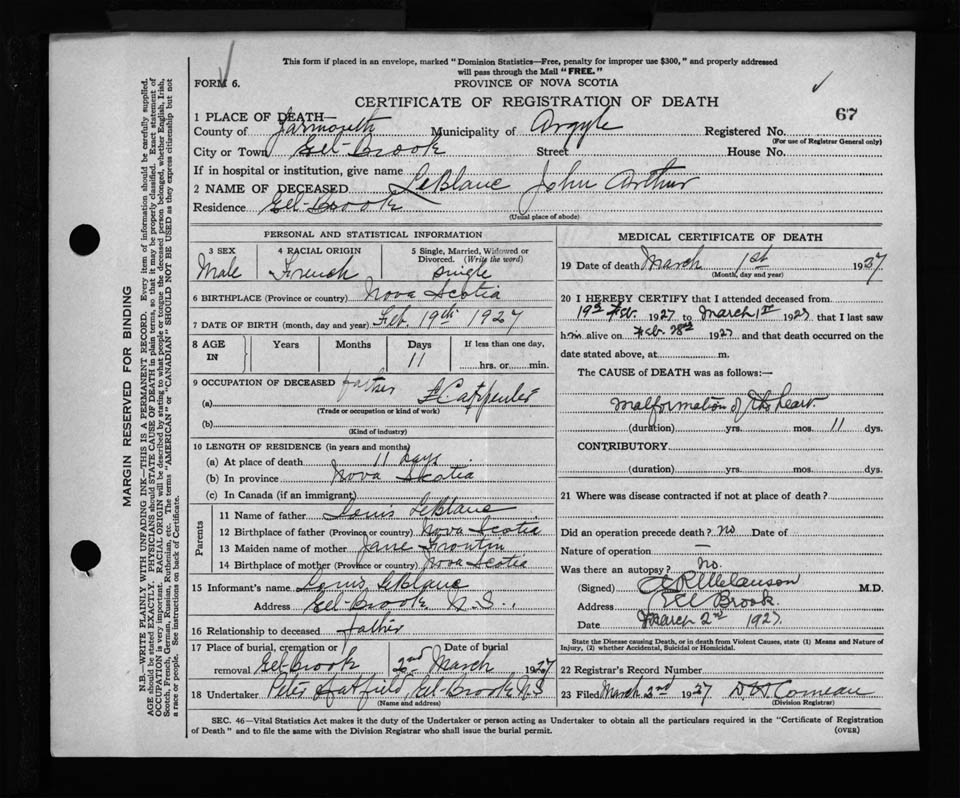 This form if placed in an envelope, marked "Dominion Statistics—Free, penalty for improper use $300," and properly addressed
will pass through the Mail "FREE."
FORM 6.
PROVINCE OF NOVA SCOTIA
CERTIFICATE OF REGISTRATION OF DEATH
67
1 PLACE OF DEATH—
County of Yarmouth Municipality of Argyle Registered No.
(For use of Registrar General only)
City or Town Eel-Brook Street House No.
If in hospital or institution, give name
2 NAME OF DECEASED LeBlanc John Arthur
Residence Eel-Brook
(Usual place of abode)
PERSONAL AND STATISTICAL INFORMATION
3 SEX 4 RACIAL ORIGIN 5 Single, Married, Widowed or
Divorced. (Write the word)
Male French Single
6 BIRTHPLACE (Province or country) Nova Scotia
7 DATE OF BIRTH (month, day and year) Feb. 19th 1927
8 AGE IN Years Months Days If less than one day,
11 hrs. or min.
9 OCCUPATION OF DECEASED father
(a) Carpenter
(Trade or occupation or kind of work)
(b)
(Kind of industry)
10 LENGTH OF RESIDENCE (in years and months)
(a) At place of death 11 Days
(b) In province Nova Scotia
(c) In Canada (if an immigrant)
Parents
11 Name of father Louis LeBlanc
12 Birthplace of father (Province or country) Nova Scotia
13 Maiden name of mother Jane
14 Birthplace of mother (Province or country) Nova Scotia
15 Informant's name Louis LeBlanc
Address Eel-Brook N.S.
16 Relationship to deceased father
17 Place of burial, cremation or Date of burial
removal Eel-Brook 2nd March 1927
18 Undertaker Peter Hatfield, Eel-Brook N S
(Name and address)
MEDICAL CERTIFICATE OF DEATH
19 Date of death March 1st 1927
(Month, day and year)
20 I HEREBY CERTIFY that I attended deceased from
19th Feb. 1927 to March 1st 1927 that I last saw
him alive on Feb. 28th 1927 and that death occurred on the
date stated above, at m.
The CAUSE of DEATH was as follows:—
Malformation of the heart.
(duration) yrs. mos. 11 dys.
CONTRIBUTORY.
(duration) yrs. mos. dys.
21 Where was disease contracted if not at place of death?
Did an operation precede death? no Date of
Nature of operation —
Was there an autopsy? No.
(Signed) Melanson M.D.
Address Eel Brook.
Date March 2nd 1927.
State the Disease causing Death, or in death from Violent Causes, state (1) Means and Nature of
Injury, (2) whether Accidental, Suicidal or Homicidal.
22 Registrar's Record Number
23 Filed March 2nd 1927 Comeau
(Division Registrar)
SEC. 46—Vital Statistics Act makes it the duty of the Undertaker or person acting as Undertaker to obtain all the particulars required in the "Certificate of Registration
of Death" and to file the same with the Division Registrar who shall issue the burial permit.
(OVER)
MARGIN RESERVED FOR BINDING
N.B.—WRITE PLAINLY WITH UNFADING INK—THIS IS A PERMANENT RECORD. Every item of information should be carefully supplied.
AGE should be stated EXACTLY. PHYSICIANS should STATE CAUSE OF DEATH in plain terms, so that it may be properly classified. Exact statement of
OCCUPATION is very important. RACIAL ORIGIN will be described by stating to what people or tongue the deceased person belonged, whether English, Irish,
Scotch, French, German, Russian, Ruthenian, etc. The terms "AMERICAN" or "CANADIAN" SHOULD NOT BE USED as they express citizenship but not
a race or people. See instructions on back of Certificate.